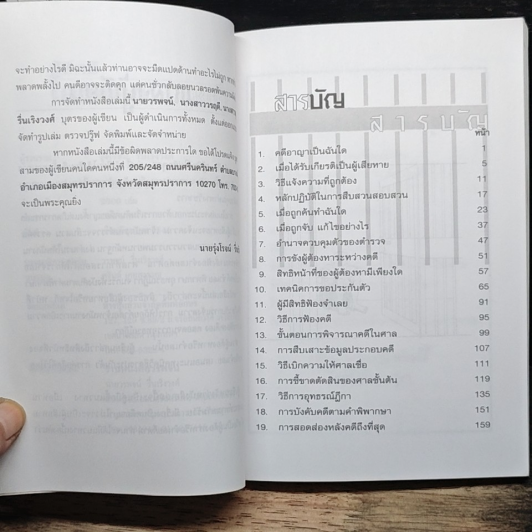 จะทำอย่างไรดี มิฉะนั้นแล้วท่านอาจจะมืดแปดด้านทำอะไรไม่ถูก
พลาดพลั้งไป คนดีอาจจะติดคุก แต่คนชั่วกลับลอยนวล
การจัดทำหนังสือเล่มนี้ นายวรพจน์, นางสาววรฤดี,
รื่นเริงวงศ์ บุตรของผู้เขียน เป็นผู้ดำเนินการทั้งหมด ตั้งแต่
จัดทำรูปเล่ม ตรวจปรู๊ฟ จัดพิมพ์และจัดจำหน่าย
หากหนังสือเล่มนี้มีข้อผิดพลาดประการใด ขอได้โปรด
สามของผู้เขียนคนใดคนหนึ่งที่ 205/248 ถนนศรีนครินทร์
อำเภอเมืองสมุทรปราการ จังหวัดสมุทรปราการ 10270 โทร.
จะเป็นพระคุณยิ่ง
นายรุ่งโรจน์
สารบัญ
สารบัญ
หน้า
1. คดีอาญาเป็นฉันใด 1
2. เมื่อได้รับเกียรติเป็นผู้เสียหาย 5
3. วิธีแจ้งความที่ถูกต้อง 11
4. หลักปฏิบัติในการสืบสวนสอบสวน 17
5. เมื่อถูกค้นทำฉันใด 23
6. เมื่อถูกจับ แก้ไขอย่างไร 37
7. อำนาจควบคุมตัวของตำรวจ 47
8. การขังผู้ต้องหาระหว่างคดี 51
9. สิทธิหน้าที่ของผู้ต้องหามีเพียงใด 57
10. เทคนิคการขอประกันตัว 65
11. ผู้มีสิทธิฟ้องจำเลย 91
12. วิธีการฟ้องคดี 95
13. ขั้นตอนการพิจารณาคดีในศาล 99
14. การสืบเสาะข้อมูลประกอบคดี 107
15. วิธีเบิกความให้ศาลเชื่อ 111
16. การชี้ขาดตัดสินของศาลชั้นต้น 119
17. วิธีการอุทธรณ์ฎีกา 135
18. การบังคับคดีตามคำพิพากษา 151
19. การสอดส่องหลังคดีถึงที่สุด 159